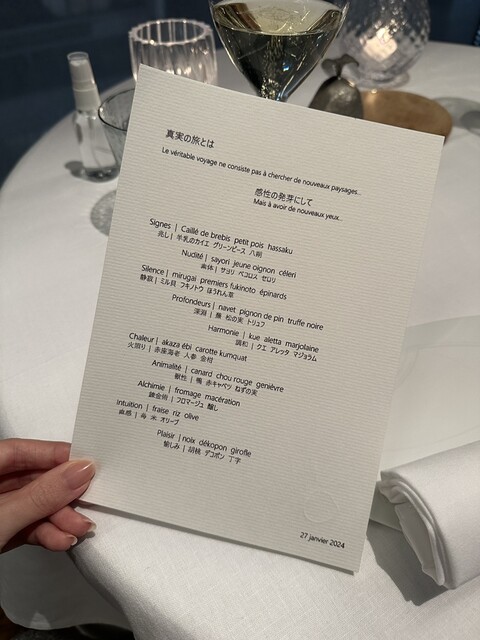 真実の旅とは
Le véritable voyage ne consiste pas à chercher de nouveaux paysages...
感性の発芽にして
Mais à avoir de nouveaux yeux...
Signes | Caillé de brebis petit pois hassaku
兆し | 羊乳のカイエ グリーンピース 八朔
Nudité | sayori jeune oignon céleri
裸体 | サヨリ ペコロス セロリ
Silence | mirugai premiers fukinoto épinards
静寂 | ミル貝 フキノトウ ほうれん草
Profondeurs | navet pignon de pin truffe noire
深淵 | 蕪 松の実 トリュフ
Harmonie | kue aletta marjolaine
調和 | クエ アレッタ マジョラム
Chaleur | akaza ébi carotte kumquat
火照り | 赤座海老 人参 金柑
Animalité | canard chou rouge genièvre
獣性 | 鴨 赤キャベツ ねずの実
Alchimie | fromage macération
錬金術 | フロマージュ 醸し
Intuition | fraise riz olive
直感 | 苺 米 オリーブ
Plaisir | noix dékopon girofle
愉しみ | 胡桃 デコポン 丁字
27 janvier 2024